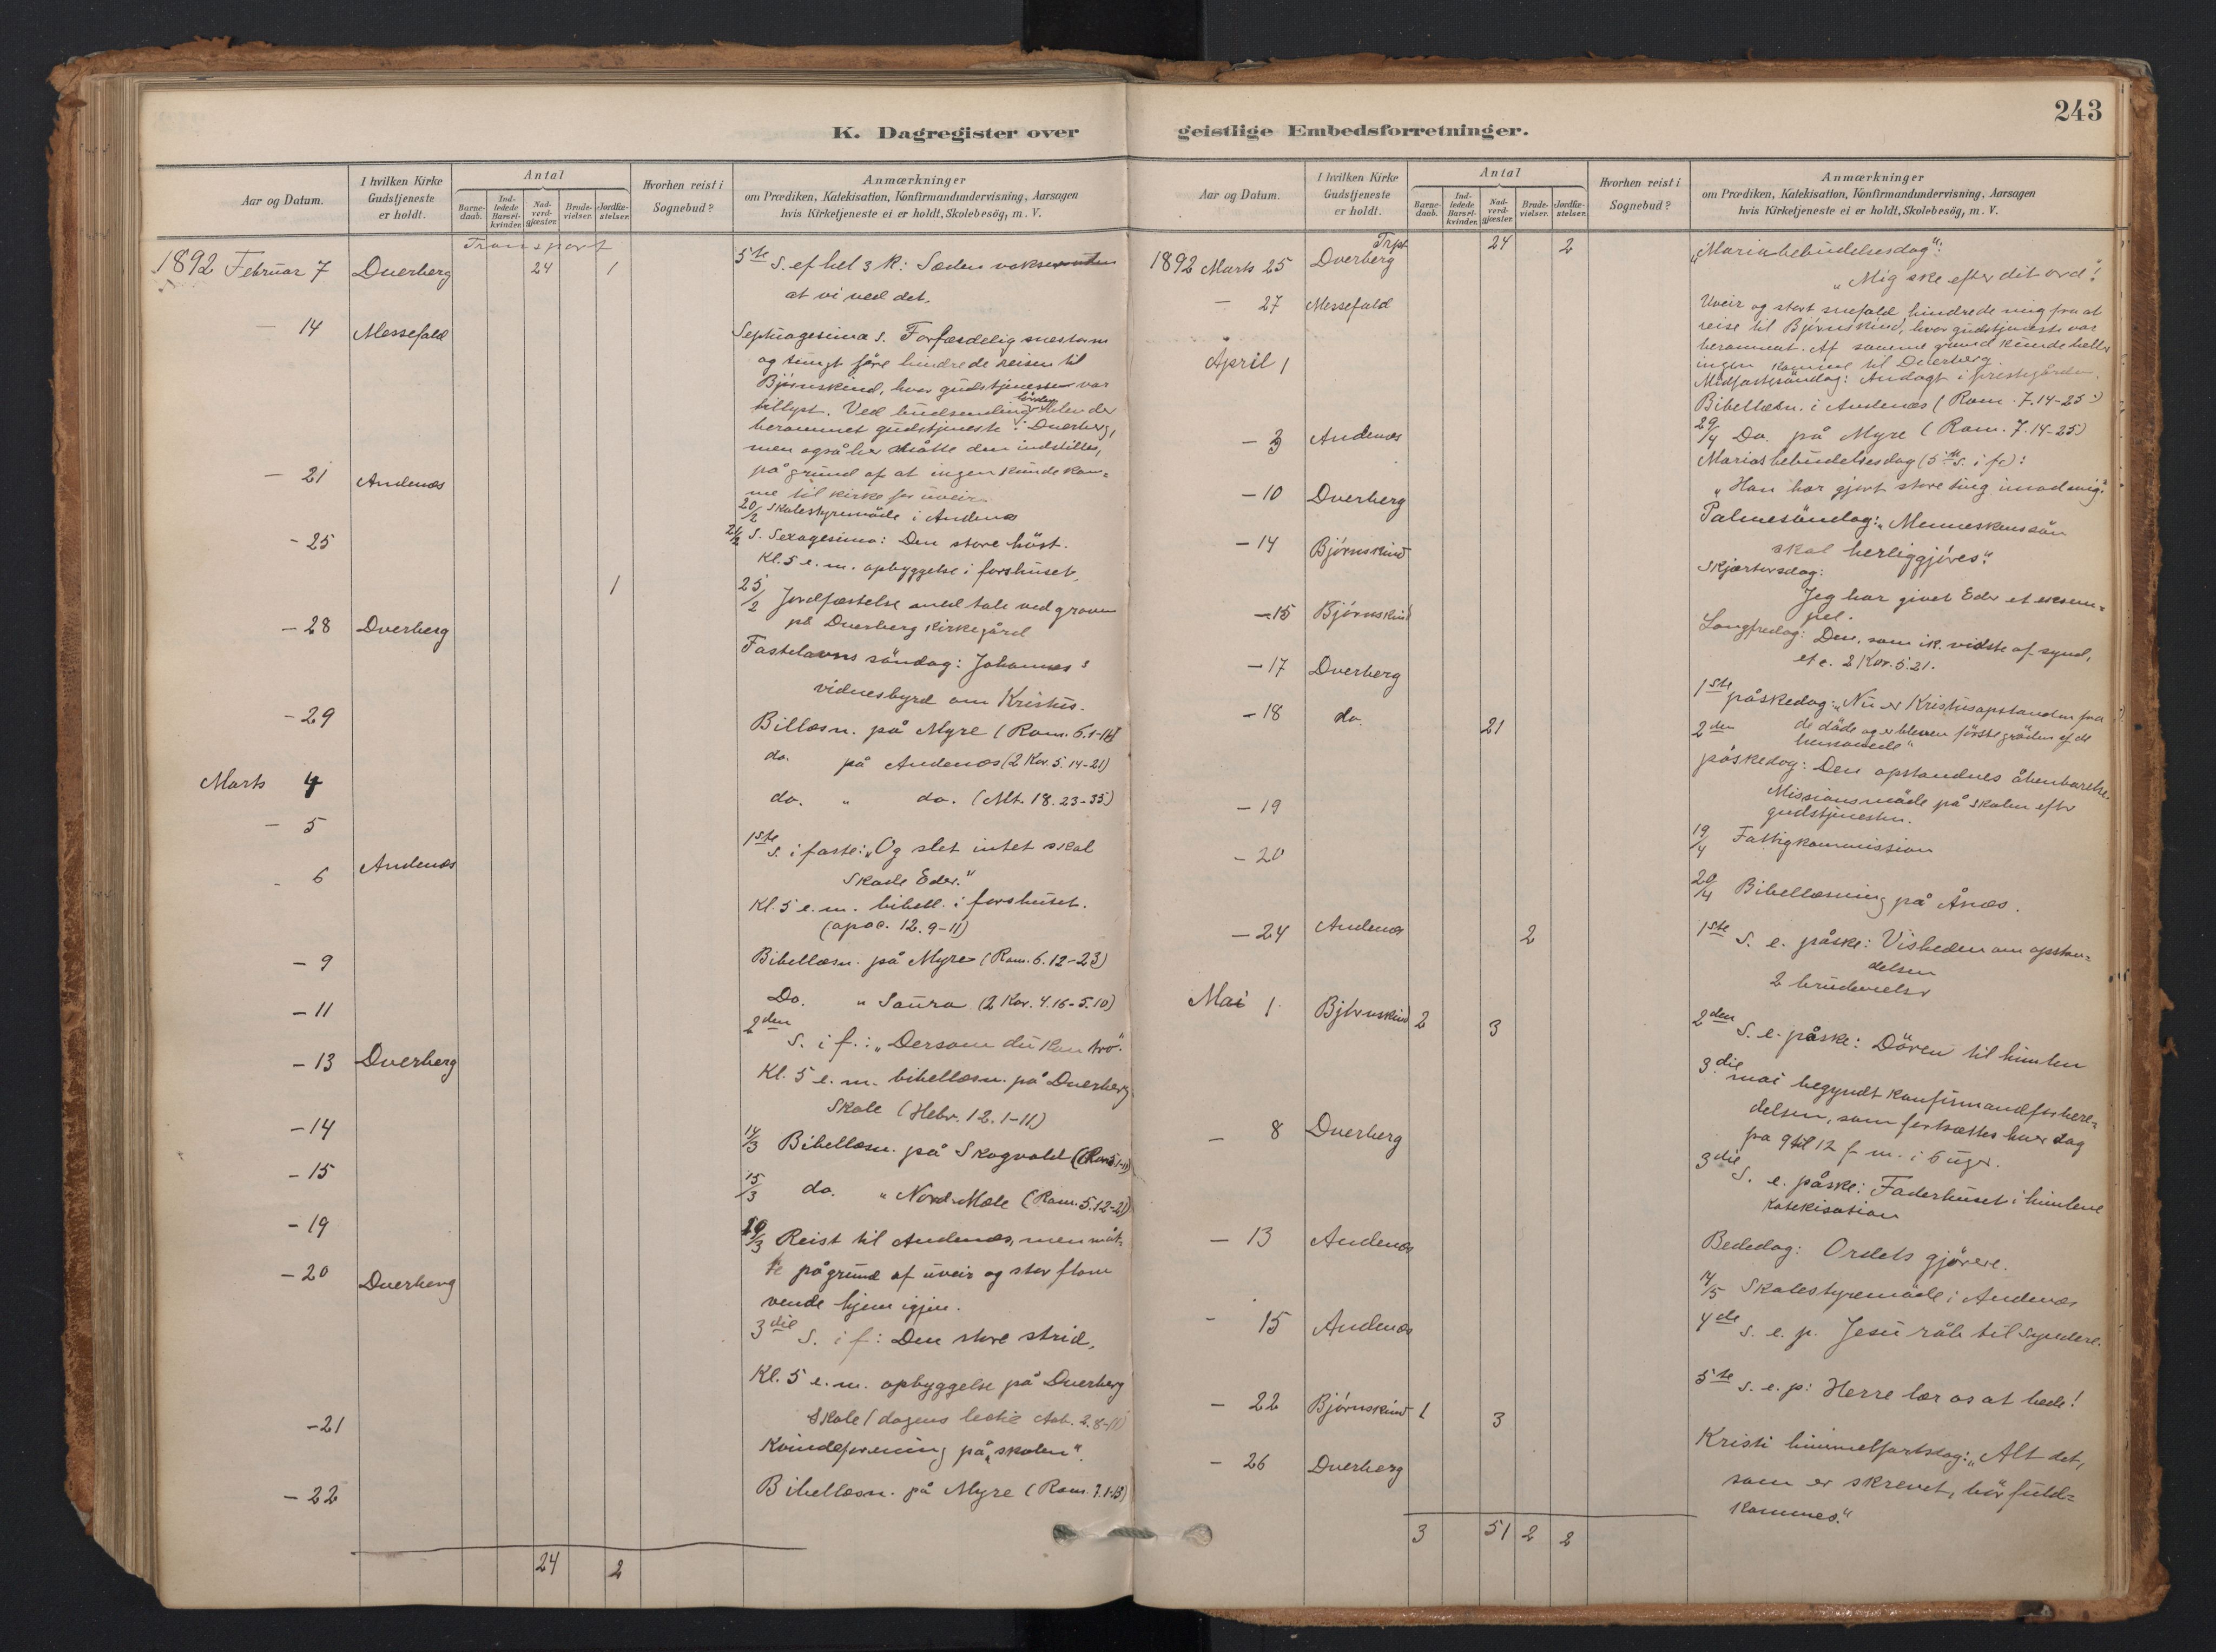 K. Dagregister over
Aar og Datum.
I hvilken Kirke Gudstjeneste er holdt.
Antal
Barne-daab.
Ind-ledede Barsel-kvinder.
Nad-verd-gjæster.
Brude-vielser.
Jordfæ-stelser.
Hvorhen reist i Sognebud?
Anmærkninger
om Prædiken, Katekisation, Konfirmandundervisning, Aarsagen
hvis Kirketjeneste ei er holdt, Skolebesög, m. V.
Transport
1892 Februar 7 Dverberg 24 1 5te S. ef hel 3 K: Sæden vokser uden
at vi ved det.
— 14 Messefald Septuagesima S. Forfærdelig snestorm
og tungt føre hindrede reisen til
Bjørnskind, hvor gudstjenesten var
tillyst. Ved budsending lørdag blev der
berammet gudstjeneste i Dverberg,
men også her måtte den indstilles,
på grund af at ingen kunde kom=
me til kirke for uveir.
20/2 Skolestyremöde i Andenæs
— 21 Andenæs 21/2 S. Sexagesima: Den store höst.
Kl. 5 e. m. opbyggelse i forshuset.
- 25 1 25/2 Jordfæstelse med tale ved graven
på Dverberg kirkegård
- 28 Dverberg Fastelavns söndag: Johannes's
vidnesbyrd om Kristus.
- 29 Billæsn. på Myre (Rom. 6.1-
Marts 4 do. på Andenæs (2 Kor. 5. 14-21)
- 5 do. " do. (Mt. 18. 23-35)
- 6 Andenæs 1ste S. i faste: „Og slet intet skal
skade Eder."
Kl. 5 e. m. bibell. i forshuset.
(apoc. 12. 9-11)
- 9 Bibellæsn. på Myre (Rom. 6. 12-23)
- 11 Do. " Saura (2 Kor. 4.16-5.10)
- 13 Dverberg 2den S. i f.: „Dersom du kan tro".
Kl. 5 e. m. bibellæsn. på Dverberg
Skole (Hebr. 12. 1-11)
- 14 14/3 Bibellæsn. på Skogvold (Rom. 5.1-11)
- 15 15/3 do. " Nord-Mæle (Rom. 5.12-21)
- 19 19/3 Reist til Andenæs, men måt=
te på grund af uveir og stor flom
vende hjem igjen.
- 20 Dverberg 3die S. i f: Den store strid.
Kl. 5 e. m. opbyggelse på Dverberg
Skole (dagens lectie Aab. 2. 8-11)
- 21 Kvindeforening på „skolen".
- 22 Bibellæsn. på Myre (Rom. 7.1-13)
24 2
243
geistlige Embedsforretninger.
Aar og Datum.
I hvilken Kirke Gudstjeneste er holdt.
Antal
Barne-daab.
Ind-ledede Barsel-kvinder.
Nad-verd-gjæster.
Brude-vielser.
Jordfæ-stelser.
Hvorhen reist i Sognebud?
Anmærkninger
om Prædiken, Katekisation, Konfirmandundervisning, Aarsagen
hvis Kirketjeneste ei er holdt, Skolebesög, m. V.
Trpt. 24 2
1892 Marts 25 Dverberg „Mariæ bebudelsesdag":
„Mig ske efter dit ord!
- 27 Messefald Uveir og stort snefald hindrede mig fra at
reise til Bjørnskind, hvor gudstjeneste var
berammet. Af samme grund kunde heller
ingen komme til Dverberg.
Midfastesöndag: Andagt i prestegården.
April 1 Bibellæsn. i Andenæs (Rom. 7.14-25)
29/4 Do. på Myre (Rom. 7.14-25)
- 3 Andenæs Marias bebudelsesdag (5te S. i f.):
„Han har gjort store ting imod mig."
- 10 Dverberg Palmesöndag: „Menneskenssön
skal herliggjöres."
- 14 Bjørnskind Skjærtorsdag:
Jeg har givet Eder et eksem=
pel.
- 15 Bjørnskind Langfredag: Den, som ik. vidste af synd,
etc. 2 Kor. 5. 21.
- 17 Dverberg 1ste påskedag: „Nu er Kristus opstanden fra
de döde og er bleven förstegröden af de
hensovede"
- 18 do. 21 2den påskedag: Den opstandnes åbenbarelse.
Missionsmöde på skolen efter
gudstjenesten.
- 19 19/4 Fattigkommission
- 20 20/4 Bibellæsning på Ånæs.
- 24 Andenæs 2 1ste S. e. påske: Visheden om opstan=
delsen
2 brudevielser
Mai 1 Bjørnskind 2 3 2den S. e. påske: Dören til himlen
3die mai begyndt konfirmandforbere=
delsen, som fortsættes hver dag
fra 9 til 12 f m. i 6 uger.
- 8 Dverberg 3die S. e. påske: Faderhuset i himlene
Katekisation
- 13 Andenæs Bededag: Ordets gjörere.
14/5 Skolestyremöde i Andenæs
- 15 Andenæs 4de S. e. p. Jesu råb til syndere.
- 22 Bjørnskind 1 3 5te S. e. p: Herre lær os at bede!
- 26 Dverberg Kristi himmelfartsdag: „Alt det,
som er skrevet, bör fuld=
kommes."
3 51 2 2